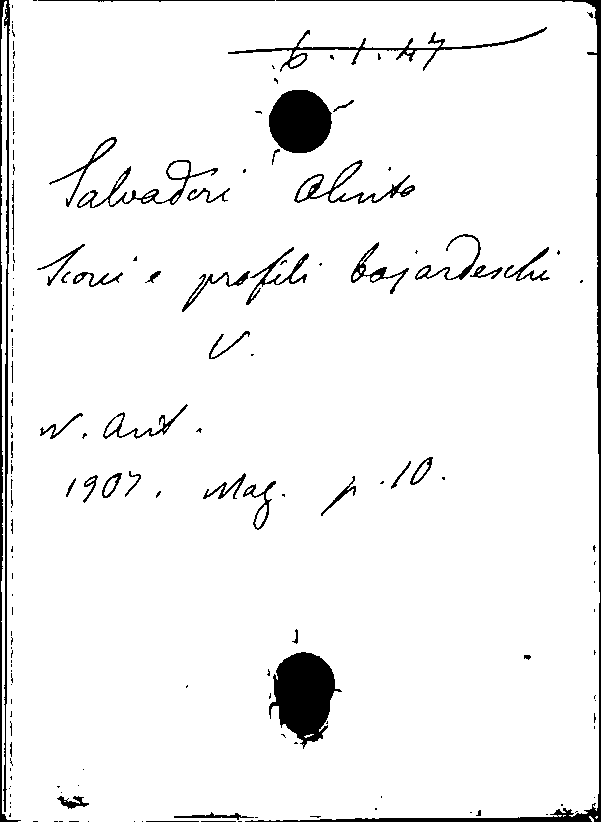 6.1.47
Salvadori Olinto
Scorci e profili bojardeschi.
V.
N. Ant.
1907. Mag. p. 10.